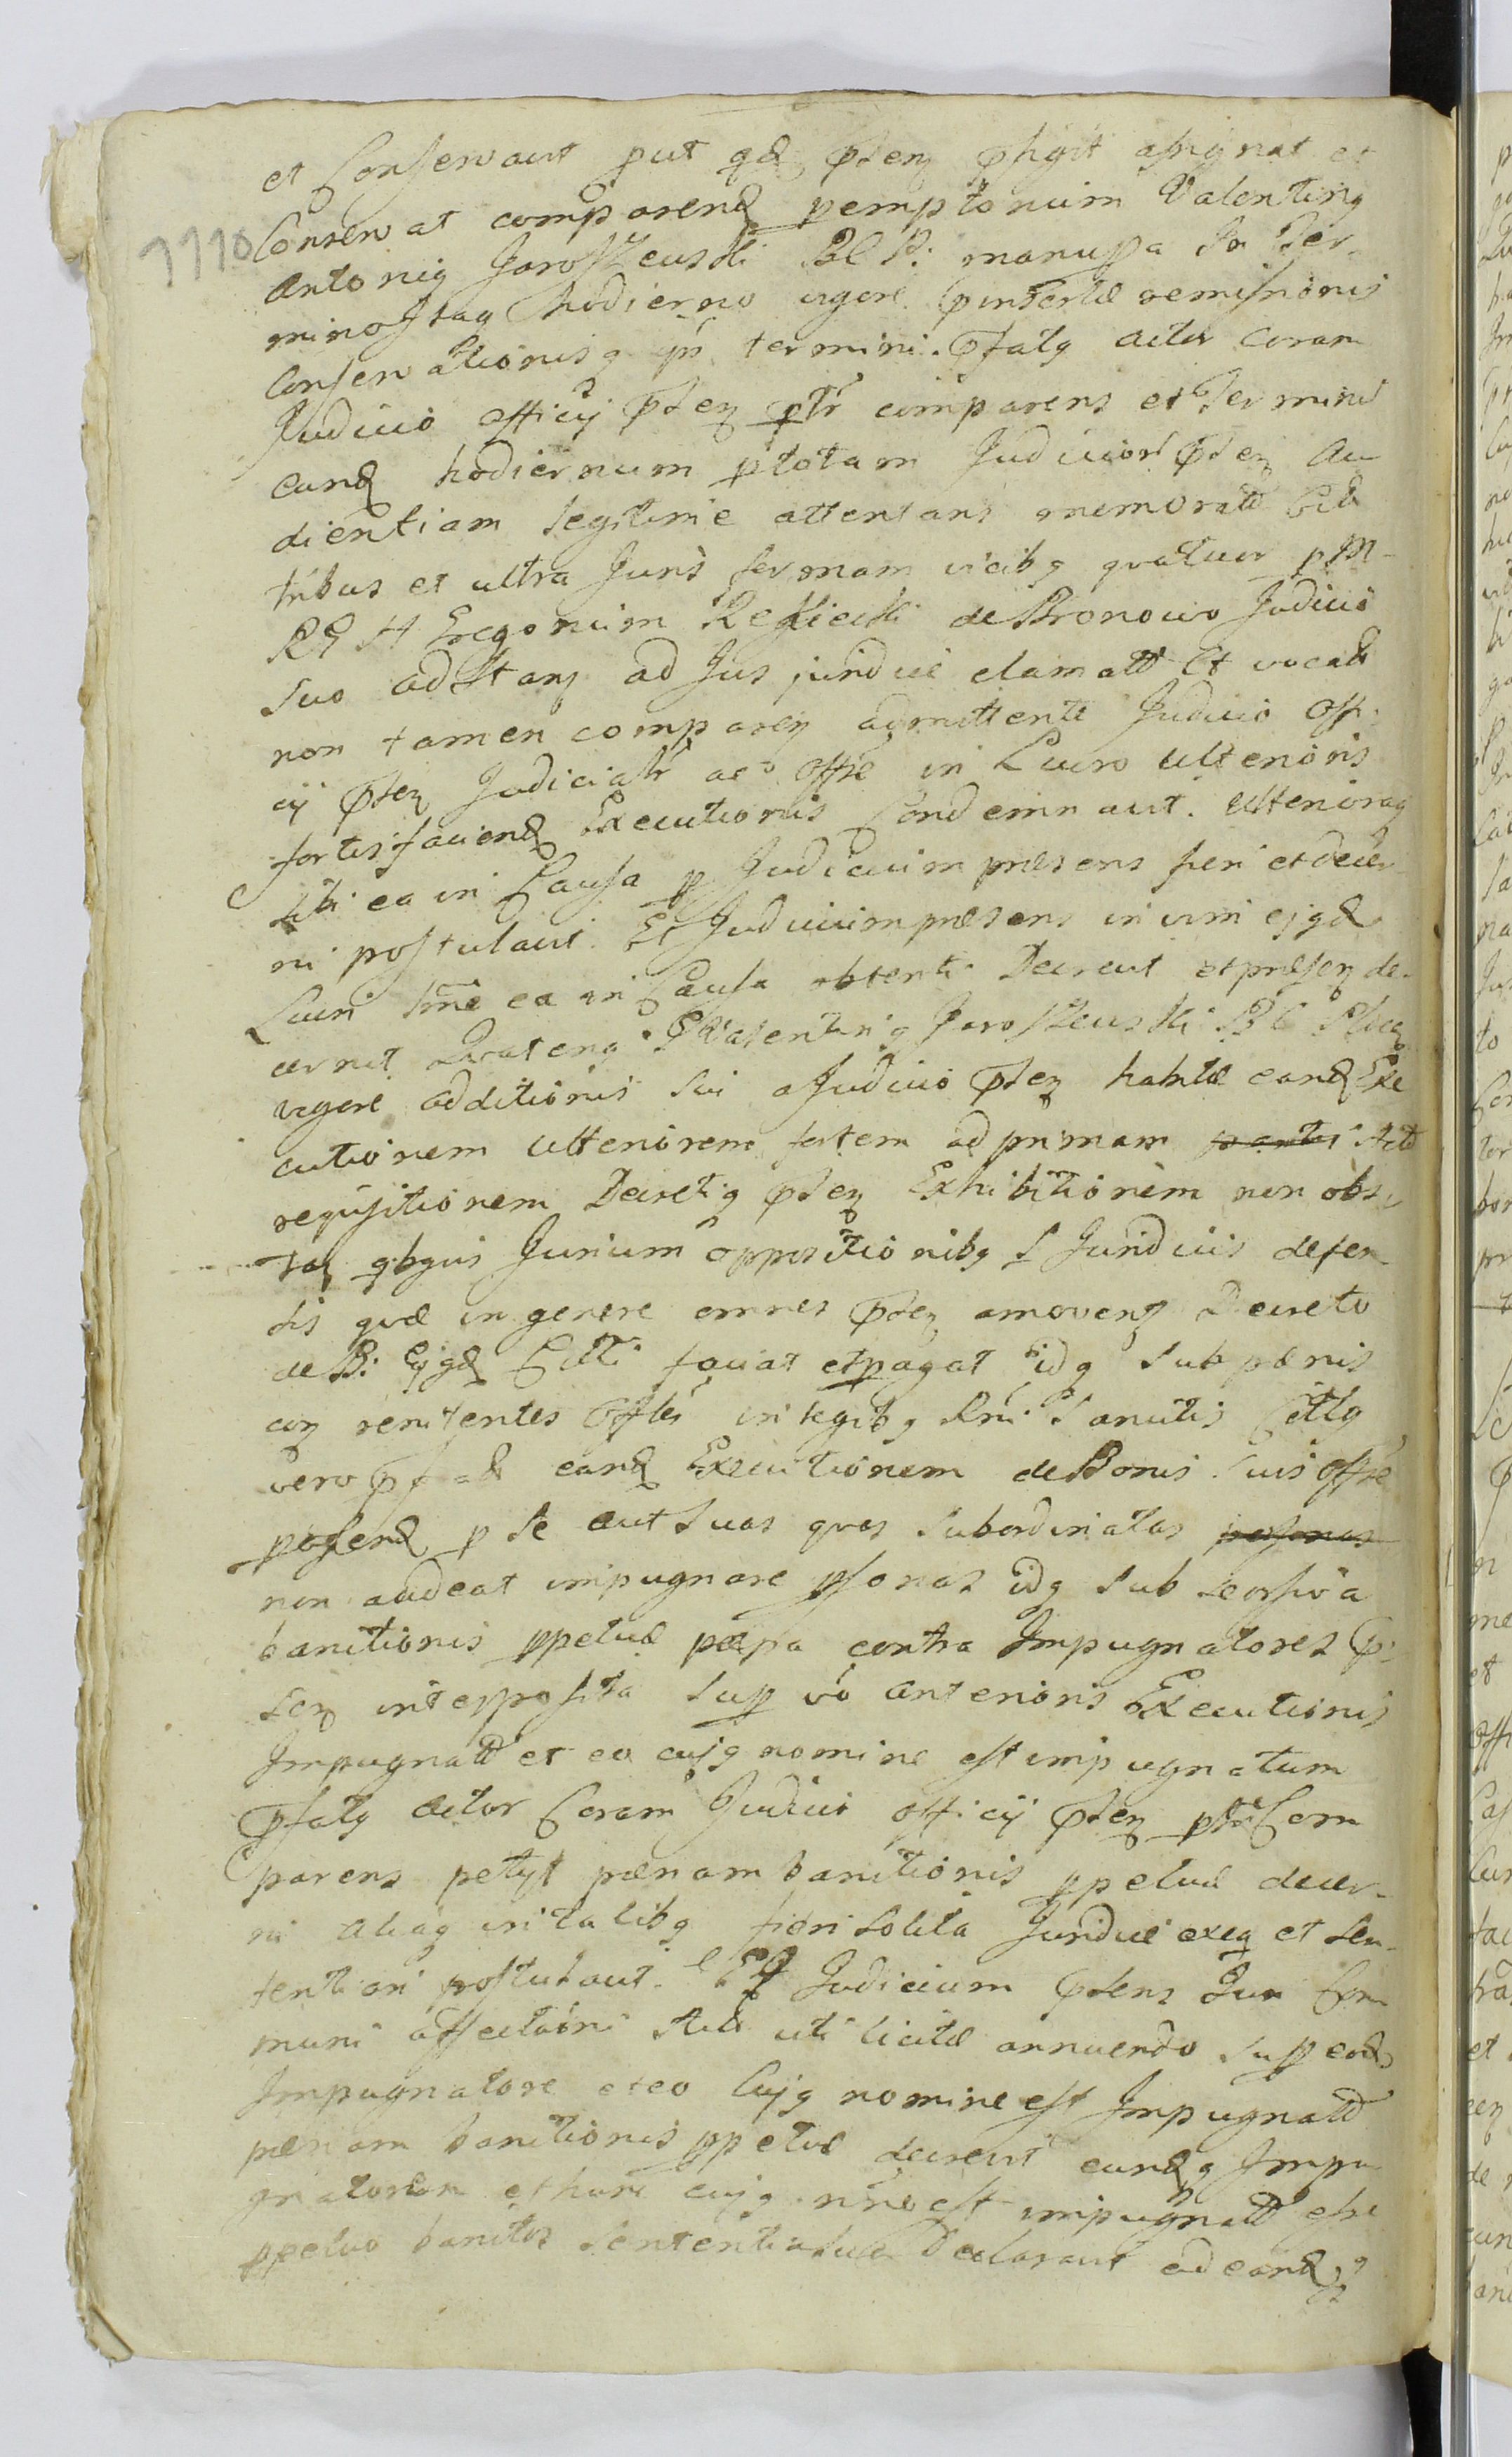 et Conservavit put qd psen pfigit assignat et
1110 Conservat comparend pemptorium Valentinq
Antoniq Jaroszewski BCP: manu ppa In Ter-
minoItaq hodierno vigore pinsertæ remissionis
Conservationisq ipsi termini. pfatq Actor coram
Judicio officij psen psolr comparens et Terminu
eund hodiernum p totam Judicior psen Au
dientiam legitime attentans memoratu Citt
tribus et ultra Juris formam vicibq quatuor p M
RG H Gregorium de Bronowo Judicio
suo adstans ad Jus juridice clamatu Et vocatu
non tamen comparen admittente Judicio Offi
cij psen Judicialr ac offse in Lucro Ulterioris
fortis faciend Executionis Condemnavit. Ulteriorag
sibi ea in Causa p Judicium præsens fieri et decer
ni postulavit. Et Judicium præsens in vim ejqd
Lucri sue ea in Causa obtenti Decrevit et præsen de-
cernit Quatenq Valentinq Jaroszewski BC
vigore additionis sui a Judicio psen habitæ eand Exe
cutionem Ulteriorem fortem ad primam partis Acto
requisitionem Decretiq psen Exhibitionem non obs-
tan qbquis Jurium oppositionibq s Juridicis defen
sis quæ in genere omnes psen amoven Decreto
de B: Ejqd Citti faciat et pagat idq sub pænis
con renitentes Offles in legibq Rni Sancitis Cittq
vero pfad eand Executionem de Bonis suis offse
possend p se aut suas quas subordinatas personas
non audeat impugnare psonas idq sub seorsiva
banitionis ppetuæ pæna contra Impugnatores p
sen interposita Sup vo anterioris Executionis
Impugnatu et eo cujq nomine est impugnatum
pfatq Actor Coram Judicio officij psen psolr Com
parens petyt pænam banitionis ppetuæ decer-
ni aliaq in talibq fieri solita Juridice exeq et sen-
tentiari postulavit. Et Judicium psens Juri Com
muni affectaoni Acto uti licitæ annuendo sup eod
Impugnatore et eo Cujq nomine est Impugnatu
pænam banitionis ppetuæ decrevit eundq Impu
gnatorem et hunc cujq nne est impugnatu esse
ppetuo banitos Sententia sua Declaravit ad eand